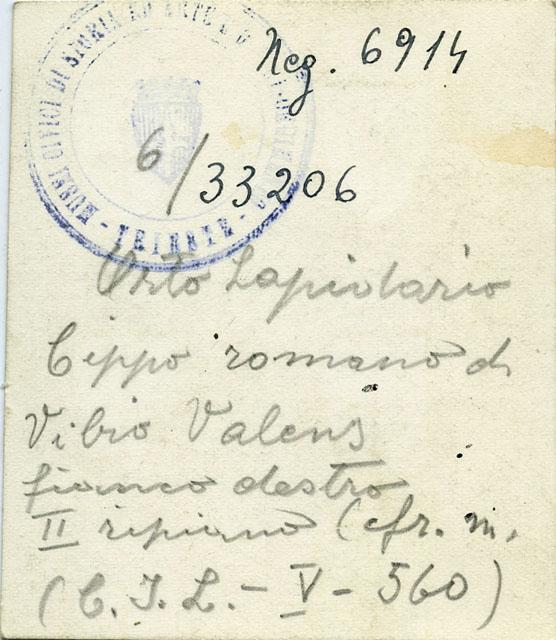 MUSEI CIVICI DI STORIA ED ARTE E D
- TRIESTE -
Neg. 6914
6/33206
Orto Lapidario
Cippo romano di
Vibio Valens
fianco destro
II ripiano (cfr. m.
(C. I. L. - V - 560)